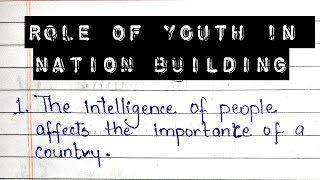 ROLE OF YOUTH IN
NATION BUILDING
1. The intelligence of people
affects the importance of a
country.